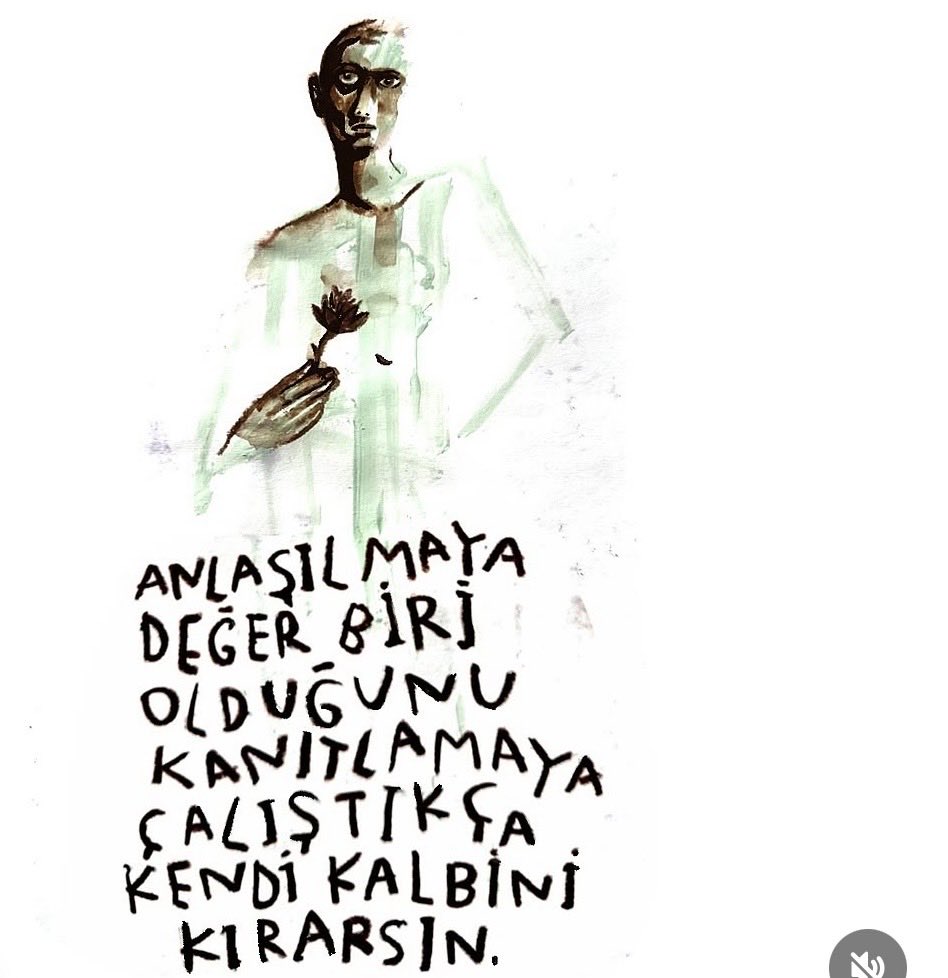 ANLAŞILMAYA
DEĞER BİRİ
OLDUĞUNU
KANITLAMAYA
ÇALIŞTIKÇA
KENDİ KALBİNİ
KIRARSIN.